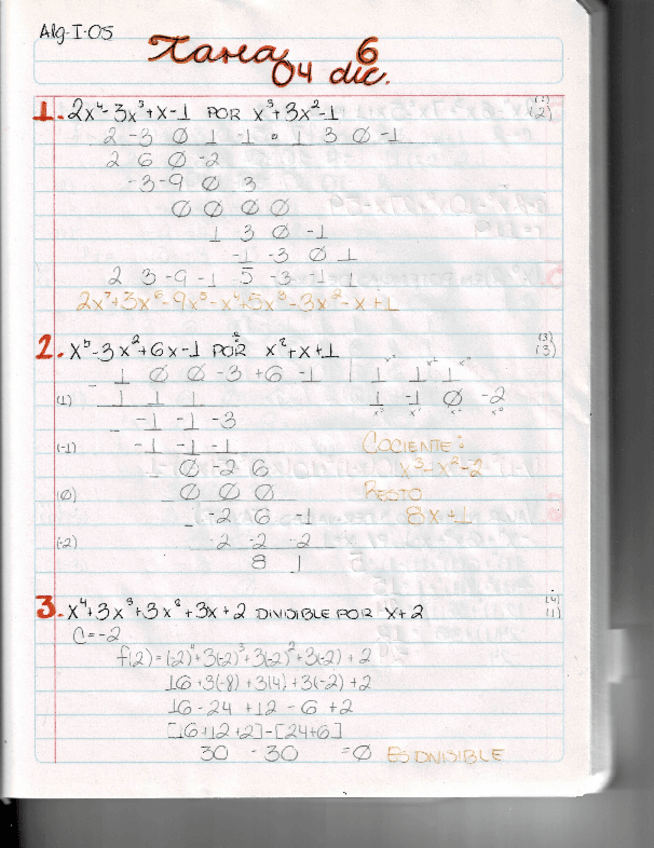 Alg-I-05
Tarea 6
04 dic.
1. 2x⁴-3x³+x-1 POR x³+3x²-1 (2)
2 -3 0 1 -1 • 1 3 0 -1
2 6 0 -2
-3 -9 0 3
0 0 0 0
1 3 0 -1
-1 -3 0 1
2 3 -9 -1 5 -3 -1 1
2x⁷+3x⁶-9x⁵-x⁴+5x³-3x²-x+1
2. x⁵-3x²+6x-1 POR x²+x+1 (3) (3)
- 1 0 0 -3 +6 -1 | 1 1 1
(1) 1 1 1 1 -1 0 -2
- -1 -1 -3
(-1) -1 -1 -1 COCIENTE:
0 -2 6 x³-x²-2
(0) 0 0 0 RESTO
- -2 6 -1 8x+1
(-2) -2 -2 -2
8 1
3. x⁴+3x³+3x²+3x+2 DIVISIBLE POR x+2 (4) (1)
C=-2
f(2)=(-2)⁴+3(-2)³+3(-2)²+3(-2)+2
16+3(-8)+3(4)+3(-2)+2
16-24+12-6+2
[16+12+2]-[24+6]
30 - 30 =0 ES DIVISIBLE